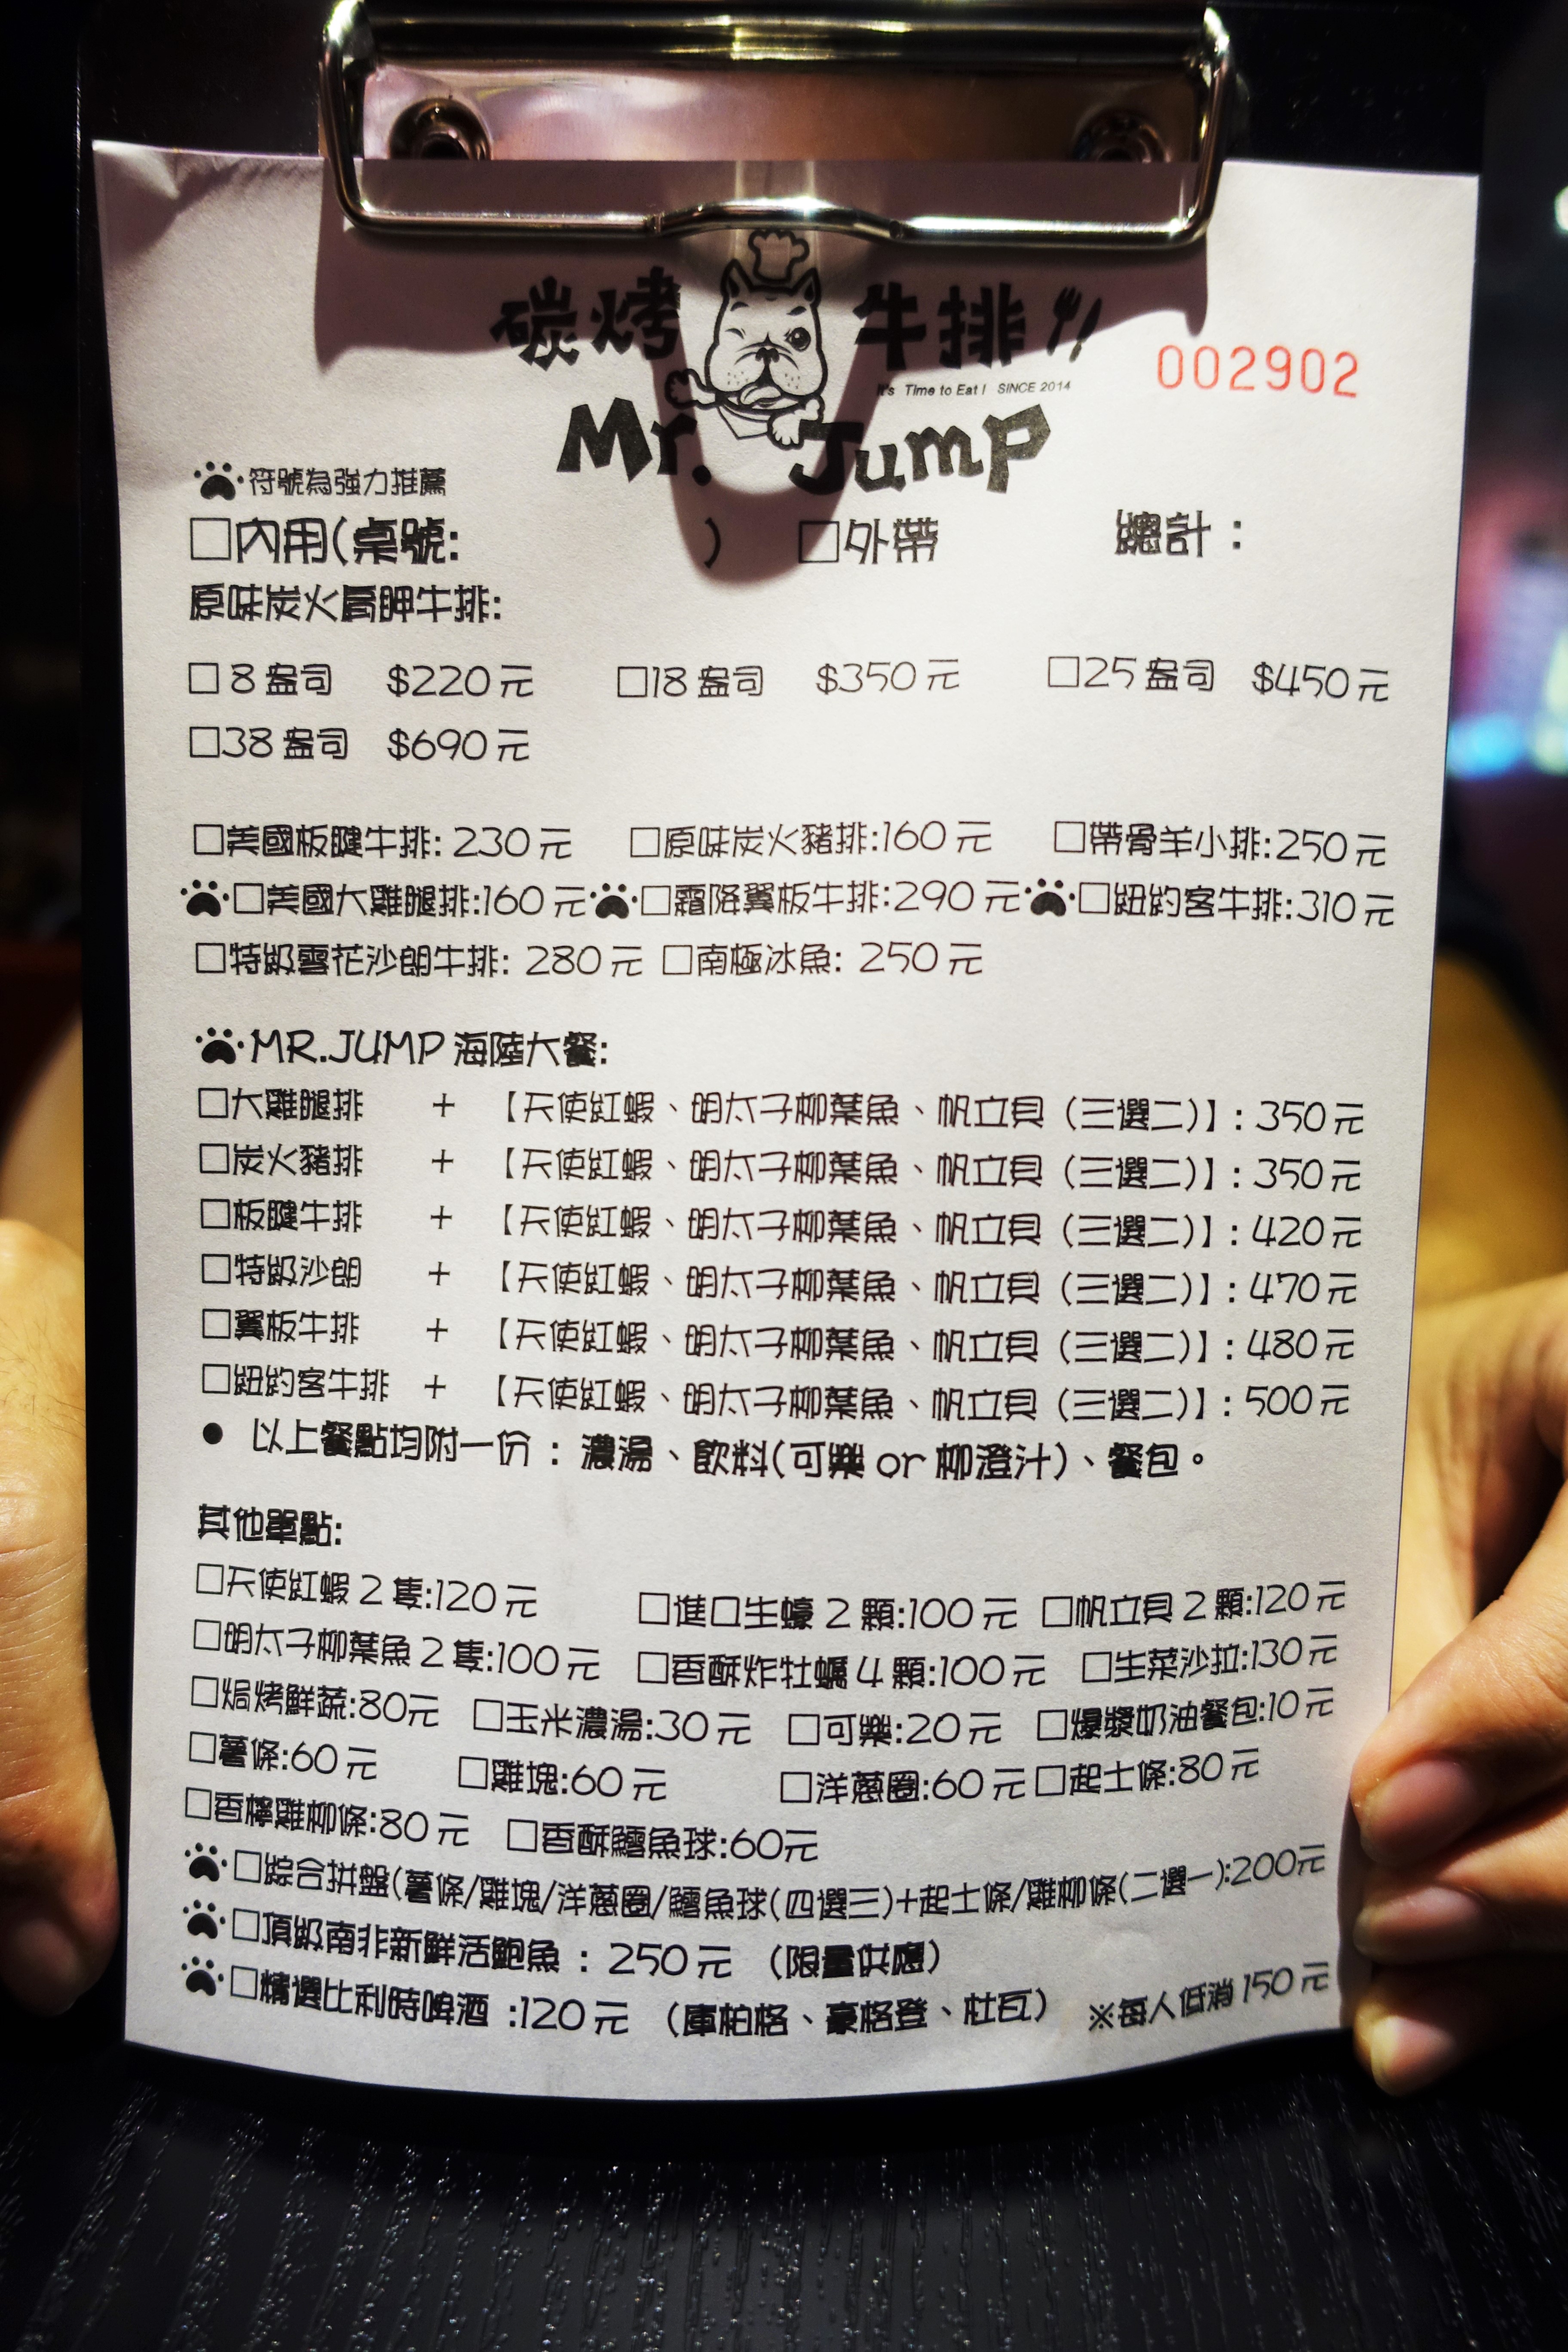 碳烤 牛排
It's Time to Eat! SINCE 2014
002902
Mr. Jump
符號為強力推薦
□內用(桌號: ) □外帶 總計：
原味炭火肩胛牛排:
□8盎司 $220元 □18盎司 $350元 □25盎司 $450元
□38盎司 $690元
□美國板腱牛排: 230元 □原味炭火豬排:160元 □帶骨羊小排:250元
□美國大雞腿排:160元 □霜降翼板牛排:290元 □紐約客牛排:310元
□特級雪花沙朗牛排: 280元 □南極冰魚: 250元
MR.JUMP海陸大餐:
□大雞腿排 + 【天使紅蝦、明太子柳葉魚、帆立貝（三選二)】: 350元
□炭火豬排 + 【天使紅蝦、明太子柳葉魚、帆立貝（三選二)】: 350元
□板腱牛排 + 【天使紅蝦、明太子柳葉魚、帆立貝（三選二)】: 420元
□特級沙朗 + 【天使紅蝦、明太子柳葉魚、帆立貝（三選二)】: 470元
□翼板牛排 + 【天使紅蝦、明太子柳葉魚、帆立貝（三選二)】: 480元
□紐約客牛排 + 【天使紅蝦、明太子柳葉魚、帆立貝（三選二)】: 500元
● 以上餐點均附一份：濃湯、飲料(可樂or柳澄汁)、餐包。
其他單點:
□天使紅蝦2隻:120元 □進口生蠔2顆:100元 □帆立貝2顆:120元
□明太子柳葉魚2隻:100元 □香酥炸牡蠣4顆:100元 □生菜沙拉:130元
□焗烤鮮蔬:80元 □玉米濃湯:30元 □可樂:20元 □爆漿奶油餐包:10元
□薯條:60元 □雞塊:60元 □洋蔥圈:60元 □起士條:80元
□香檸雞柳條:80元 □香酥鱈魚球:60元
□綜合拼盤(薯條/雞塊/洋蔥圈/鱈魚球(四選三)+起士條/雞柳條(二選一):200元
□頂級南非新鮮活鮑魚：250元（限量供應）
□精選比利時啤酒 :120元（庫柏格、豪格登、杜瓦） ※每人低消150元